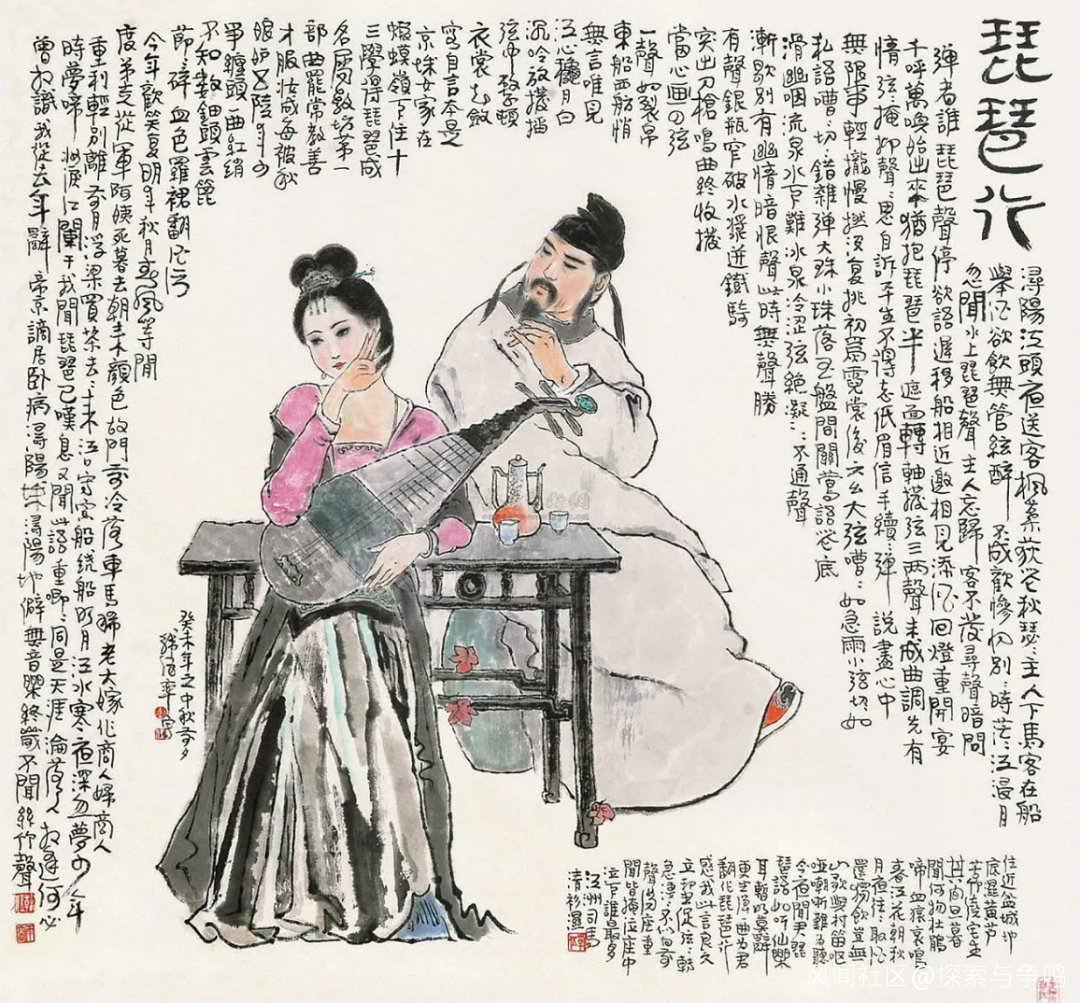 琵琶行
潯陽江頭夜送客楓葉荻花秋瑟〻主人下馬客在船
舉酒欲飲無管絃醉不成歡慘將別〻時茫〻江浸月
忽聞水上琵琶聲主人忘歸客不發尋聲暗問
彈者誰琵琶聲停欲語遲移船相近邀相見添酒回燈重開宴
千呼萬喚始出來猶抱琵琶半遮面轉軸撥弦三兩聲未成曲調先有
情弦〻掩抑聲〻思自訴平生不得志低眉信手續〻彈說盡心中
無限事輕攏慢撚沒復挑初爲霓裳後六么大弦嘈〻如急雨小弦切〻如
私語嘈〻切〻錯雜彈大珠小珠落玉盤間關鶯語花底
滑幽咽流泉水下難冰泉冷澀弦絕凝〻〻不通聲
漸歇別有幽情暗恨聲此時無聲勝
有聲銀瓶窄破水漿迸鐵騎
突出刀槍鳴曲終收撥
當心画四弦
一聲如裂帛
東船西舫悄
無言唯見
江心穐月白
沉吟放撥插
弦中整頓
衣裳起斂
容自言本是
京城女家在
蝦蟆嶺下住十
三學得琵琶成
名屬教坊第一
部曲罷常教善
才服妝成每被秋
娘妒五陵年少
爭纏頭一曲紅綃
不知數鈿頭雲篦
節碎血色羅裙翻酒污
今年歡笑復明年秋月春風等閒
度弟走從軍阿姨死暮去朝來顏色故門前冷落車馬稀老大嫁作商人婦商人
重利輕別離前月浮梁買茶去〻來江口守空船繞船明月江水寒夜深忽夢少年
時夢啼妝淚紅闌干我聞琵琶已嘆息又聞此語重唧〻同是天涯淪落人相逢何必
曾相識我從去年辭帝京謫居臥病潯陽城潯陽地僻無音樂終歲不聞絲竹聲
住近湓城地
底濕黃芦
苦竹繞宅生
其間旦暮
聞何物杜鵑
啼血猿哀鳴
春江花朝秋
月夜往〻取酒
還獨飲豈無
山歌與村笛嘔
啞嘲哳難為聽
今夜聞君琵
琶語如听仙樂
耳暫明莫辭
更坐彈一曲為君
翻作琵琶行
感我此言良久
立却坐促弦〻轉
急淒〻不似向前
聲滿座重
聞皆掩泣座中
泣下誰最多
江州司馬
青衫濕
癸未年之中秋前夕
風聞社区@探索与争鸣